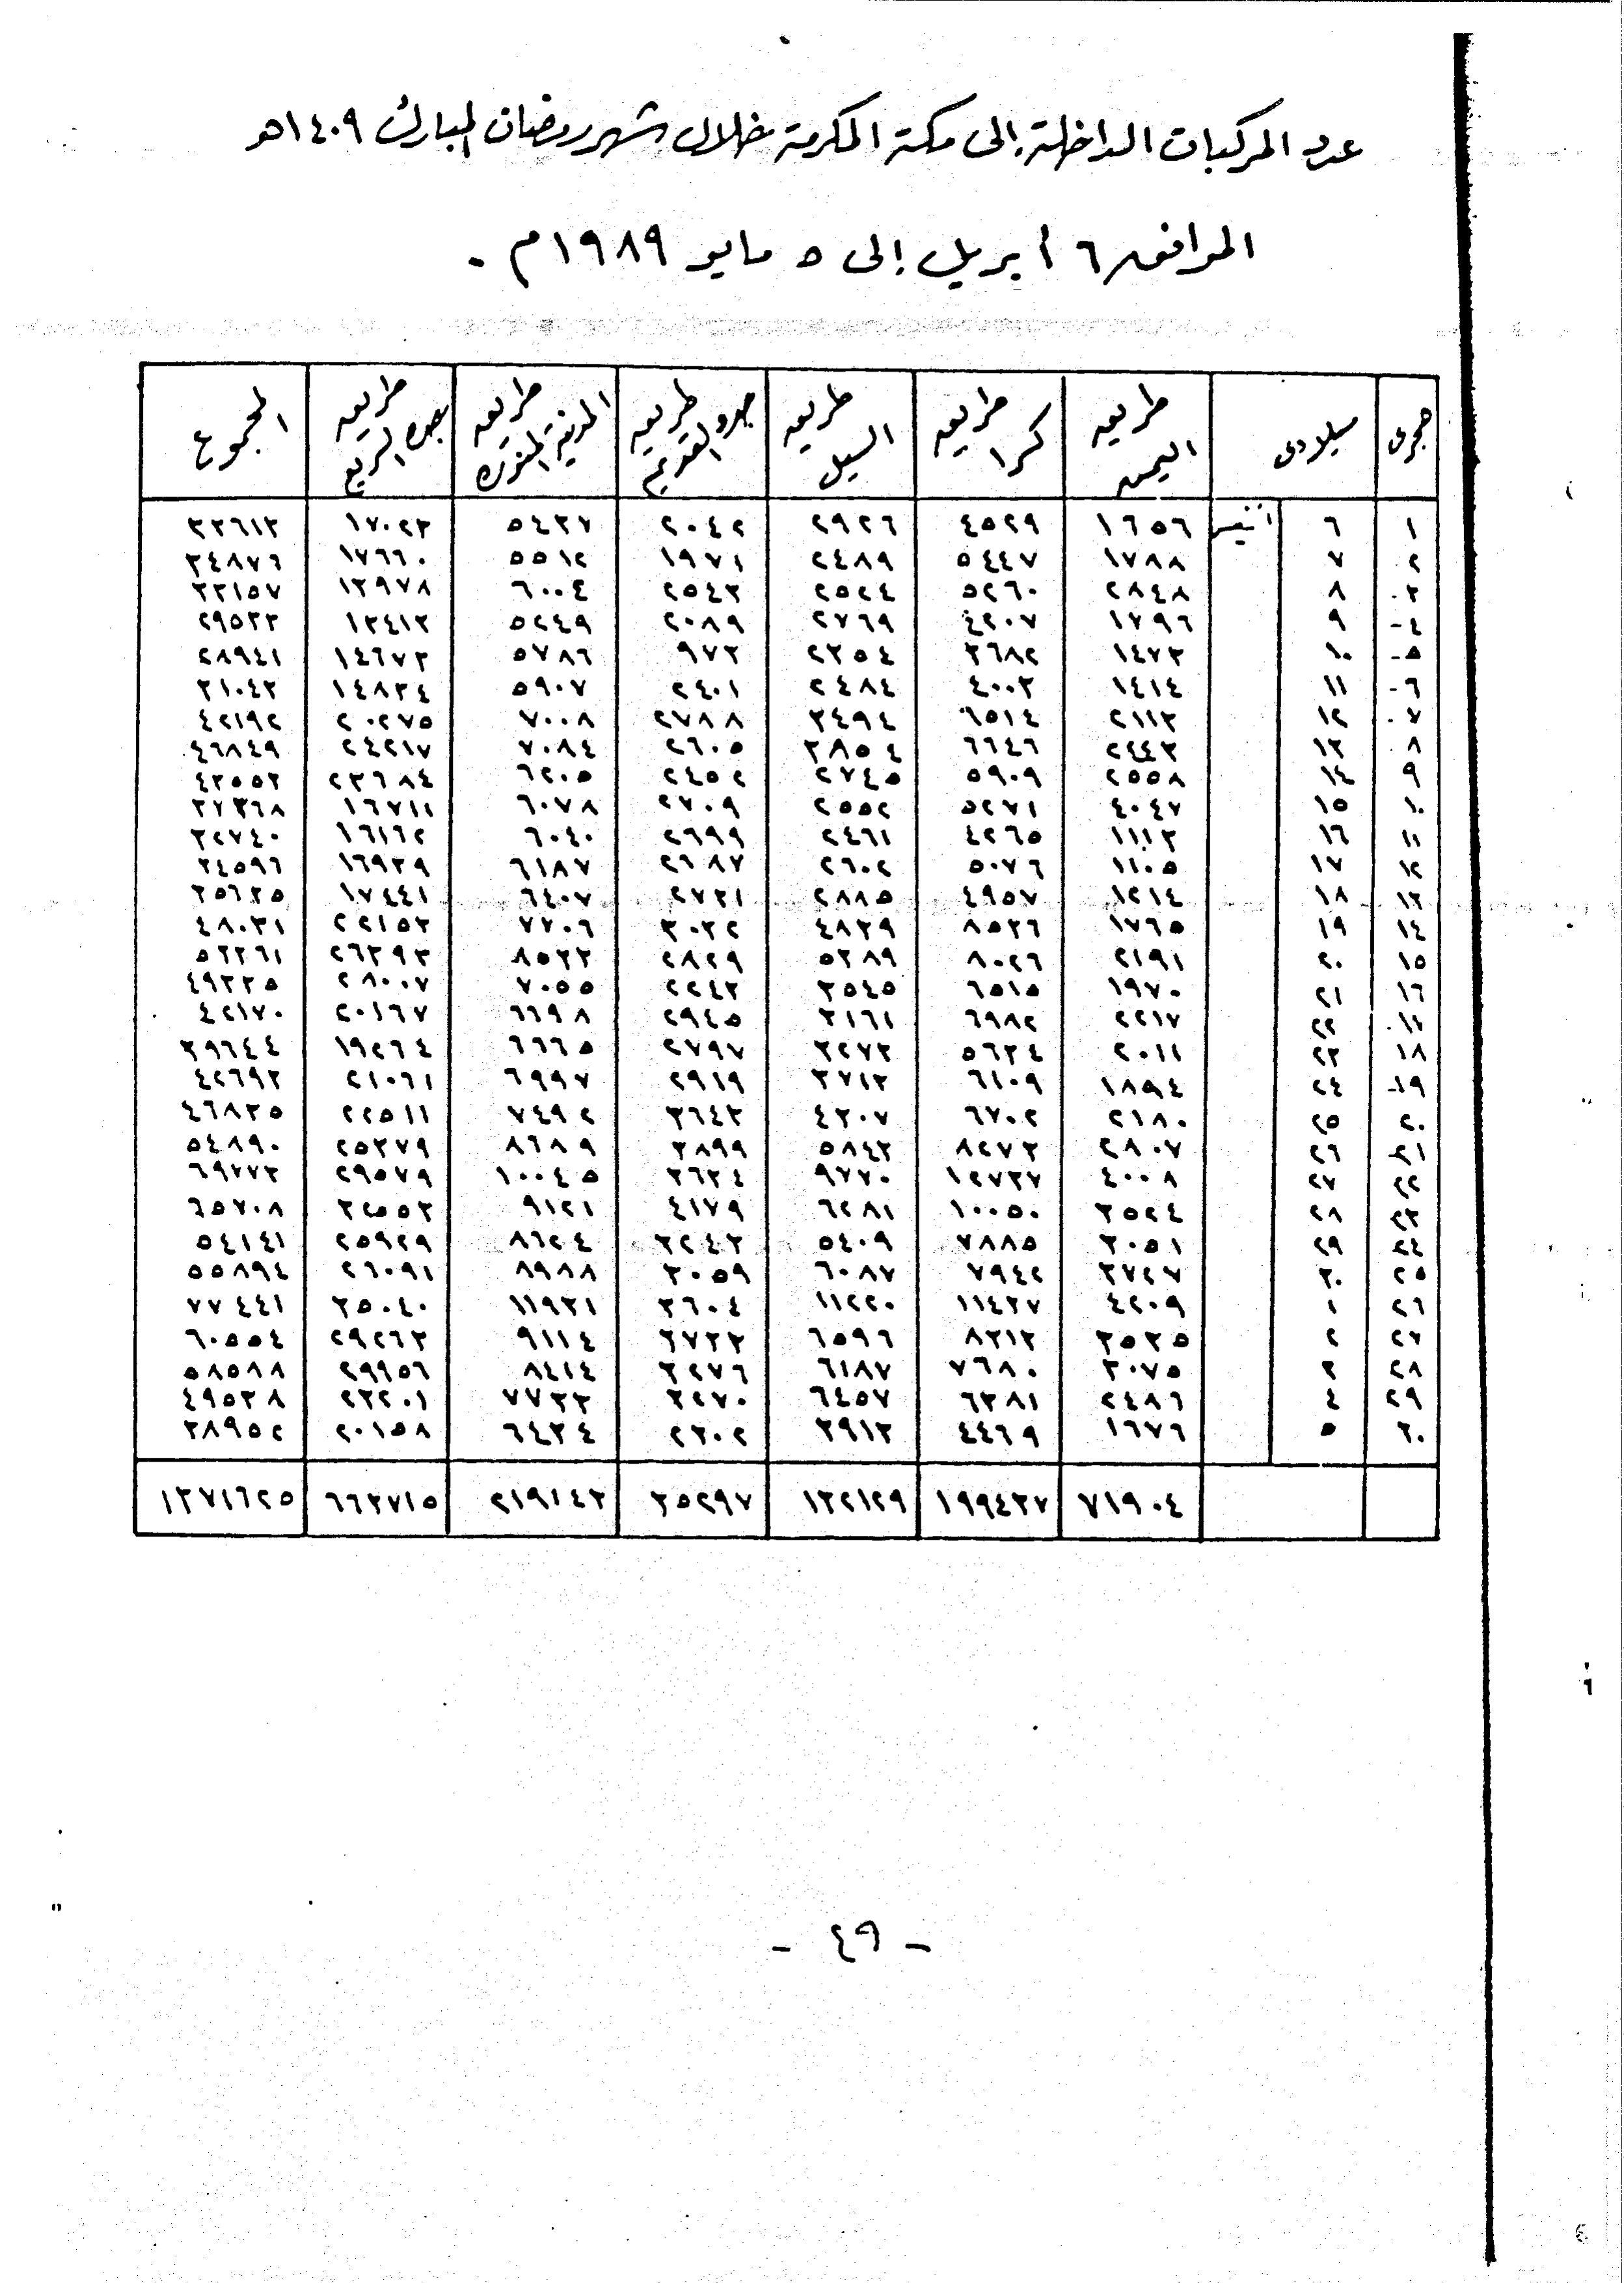 عدد المركبات الداخلة إلى مكة المكرمة خلال شهر رمضان المبارك ١٤٠٩هـ
الموافق ٦ أبريل إلى ٥ مايو ١٩٨٩م .
هجرى ميلادى طريق اليمن طريق كرا طريق السيل طريق جدة القديم طريق المدينة المنورة طريق جدة السريع المجموع
١ ٦ ١٦٥٦ ٤٥٢٩ ٢٩٢٦ ٢٠٤٢ ٥٤٣٧ ١٧٠٢٣ ٣٣٦١٣
٢ ٧ ١٧٨٨ ٥٤٤٧ ٢٤٨٩ ١٩٧١ ٥٥١٢ ١٧٦٦٠ ٣٤٨٧٦
٣ ٨ ٢٨٤٨ ٥٢٦٠ ٢٥٢٤ ٢٥٤٣ ٦٠٠٤ ١٣٩٧٨ ٣٣١٥٧
٤ ٩ ١٧٩٦ ٤٢٠٧ ٢٧٦٩ ٢٠٨٩ ٥٢٤٩ ١٣٤١٣ ٢٩٥٣٣
٥ ١٠ ١٤٧٣ ٣٦٨٢ ٢٣٥٤ ٩٧٣ ٥٧٨٦ ١٤٦٧٣ ٢٨٩٤١
٦ ١١ ١٤١٤ ٤٠٠٣ ٢٤٨٤ ٢٤٠١ ٥٩٠٧ ١٤٨٣٤ ٣١٠٤٣
٧ ١٢ ٢١١٣ ٦٥١٤ ٣٤٩٤ ٢٧٨٨ ٧٠٠٨ ٢٠٢٧٥ ٤٢١٩٢
٨ ١٣ ٢٤٤٣ ٦٦٤٦ ٣٨٥٤ ٢٦٠٥ ٧٠٨٤ ٢٤٢١٧ ٤٦٨٤٩
٩ ١٤ ٢٥٥٨ ٥٩٠٩ ٢٧٤٥ ٢٤٥٢ ٦٢٠٥ ٢٣٦٨٤ ٤٣٥٥٣
١٠ ١٥ ٤٠٤٧ ٥٢٧١ ٢٥٥٢ ٢٧٠٩ ٦٠٧٨ ١٦٧١١ ٣٧٣٦٨
١١ ١٦ ١١١٣ ٤٢٦٥ ٢٤٦١ ٢٦٩٩ ٦٠٤٠ ١٦١٦٢ ٣٢٧٤٠
١٢ ١٧ ١١٠٥ ٥٠٧٦ ٢٦٠٢ ٢٦٨٧ ٦١٨٧ ١٦٩٣٩ ٣٤٥٩٦
١٣ ١٨ ١٢١٤ ٤٩٥٧ ٢٨٨٥ ٢٧٣١ ٦٤٠٧ ١٧٤٤١ ٣٥٦٣٥
١٤ ١٩ ١٧٦٥ ٨٥٣٦ ٤٨٣٩ ٣٠٣٢ ٧٧٠٦ ٢٢١٥٣ ٤٨٠٣١
١٥ ٢٠ ٢١٩١ ٨٠٢٦ ٥٣٨٩ ٢٨٢٩ ٨٥٣٣ ٢٦٣٩٣ ٥٣٣٦١
١٦ ٢١ ١٩٧٠ ٦٥١٥ ٣٥٤٥ ٢٢٤٣ ٧٠٥٥ ٢٨٠٠٧ ٤٩٣٣٥
١٧ ٢٢ ٢٢١٧ ٦٩٨٢ ٣١٦١ ٢٩٤٥ ٦٦٩٨ ٢٠١٦٧ ٤٢١٧٠
١٨ ٢٣ ٢٠١١ ٥٦٣٤ ٣٢٧٣ ٢٧٩٧ ٦٦٦٥ ١٩٢٦٤ ٣٩٦٤٤
١٩ ٢٤ ١٨٩٤ ٦١٠٩ ٣٧١٣ ٢٩١٩ ٦٩٩٧ ٢١٠٦١ ٤٢٦٩٣
٢٠ ٢٥ ٢١٨٠ ٦٧٠٢ ٤٣٠٧ ٣٦٤٣ ٧٤٩٢ ٢٢٥١١ ٤٦٨٣٥
٢١ ٢٦ ٢٨٠٧ ٨٢٧٣ ٥٨٤٣ ٣٨٩٩ ٨٦٨٩ ٢٥٣٧٩ ٥٤٨٩٠
٢٢ ٢٧ ٤٠٠٨ ١٢٧٣٧ ٩٧٧٠ ٣٦٣٤ ١٠٠٤٥ ٢٩٥٧٩ ٦٩٧٧٣
٢٣ ٢٨ ٣٥٢٤ ١٠٠٥٠ ٦٢٨١ ٤١٧٩ ٩١٢١ ٣٢٥٥٣ ٦٥٧٠٨
٢٤ ٢٩ ٣٠٥١ ٧٨٨٥ ٥٤٠٩ ٣٢٤٣ ٨٦٢٤ ٢٥٩٢٩ ٥٤١٤١
٢٥ ٣٠ ٣٧٢٧ ٧٩٤٢ ٦٠٨٧ ٣٠٥٩ ٨٩٨٨ ٢٦٠٩١ ٥٥٨٩٤
٢٦ ١ ٤٢٠٩ ١١٤٣٧ ١١٢٢٠ ٣٦٠٤ ١١٩٣١ ٣٥٠٤٠ ٧٧٤٤١
٢٧ ٢ ٣٥٣٥ ٨٣١٣ ٦٥٩٦ ٣٧٣٣ ٩١١٤ ٢٩٢٦٣ ٦٠٥٥٤
٢٨ ٣ ٣٠٧٥ ٧٦٨٠ ٦١٨٧ ٣٢٧٦ ٨٤١٤ ٢٩٩٥٦ ٥٨٥٨٨
٢٩ ٤ ٢٤٨٦ ٦٣٨١ ٦٤٥٧ ٣٢٧٠ ٧٧٣٣ ٢٣٢٠١ ٤٩٥٣٨
٣٠ ٥ ١٦٧٦ ٤٤٦٩ ٣٩١٣ ٢٣٠٢ ٦٤٣٤ ٢٠١٥٨ ٣٨٩٥٢
٧١٩٠٤ ١٩٩٤٣٧ ١٣٢١٢٩ ٣٥٢٩٧ ٢١٩١٤٣ ٦٦٣٧١٥ ١٣٧١٦٢٥
- ٤٩ -